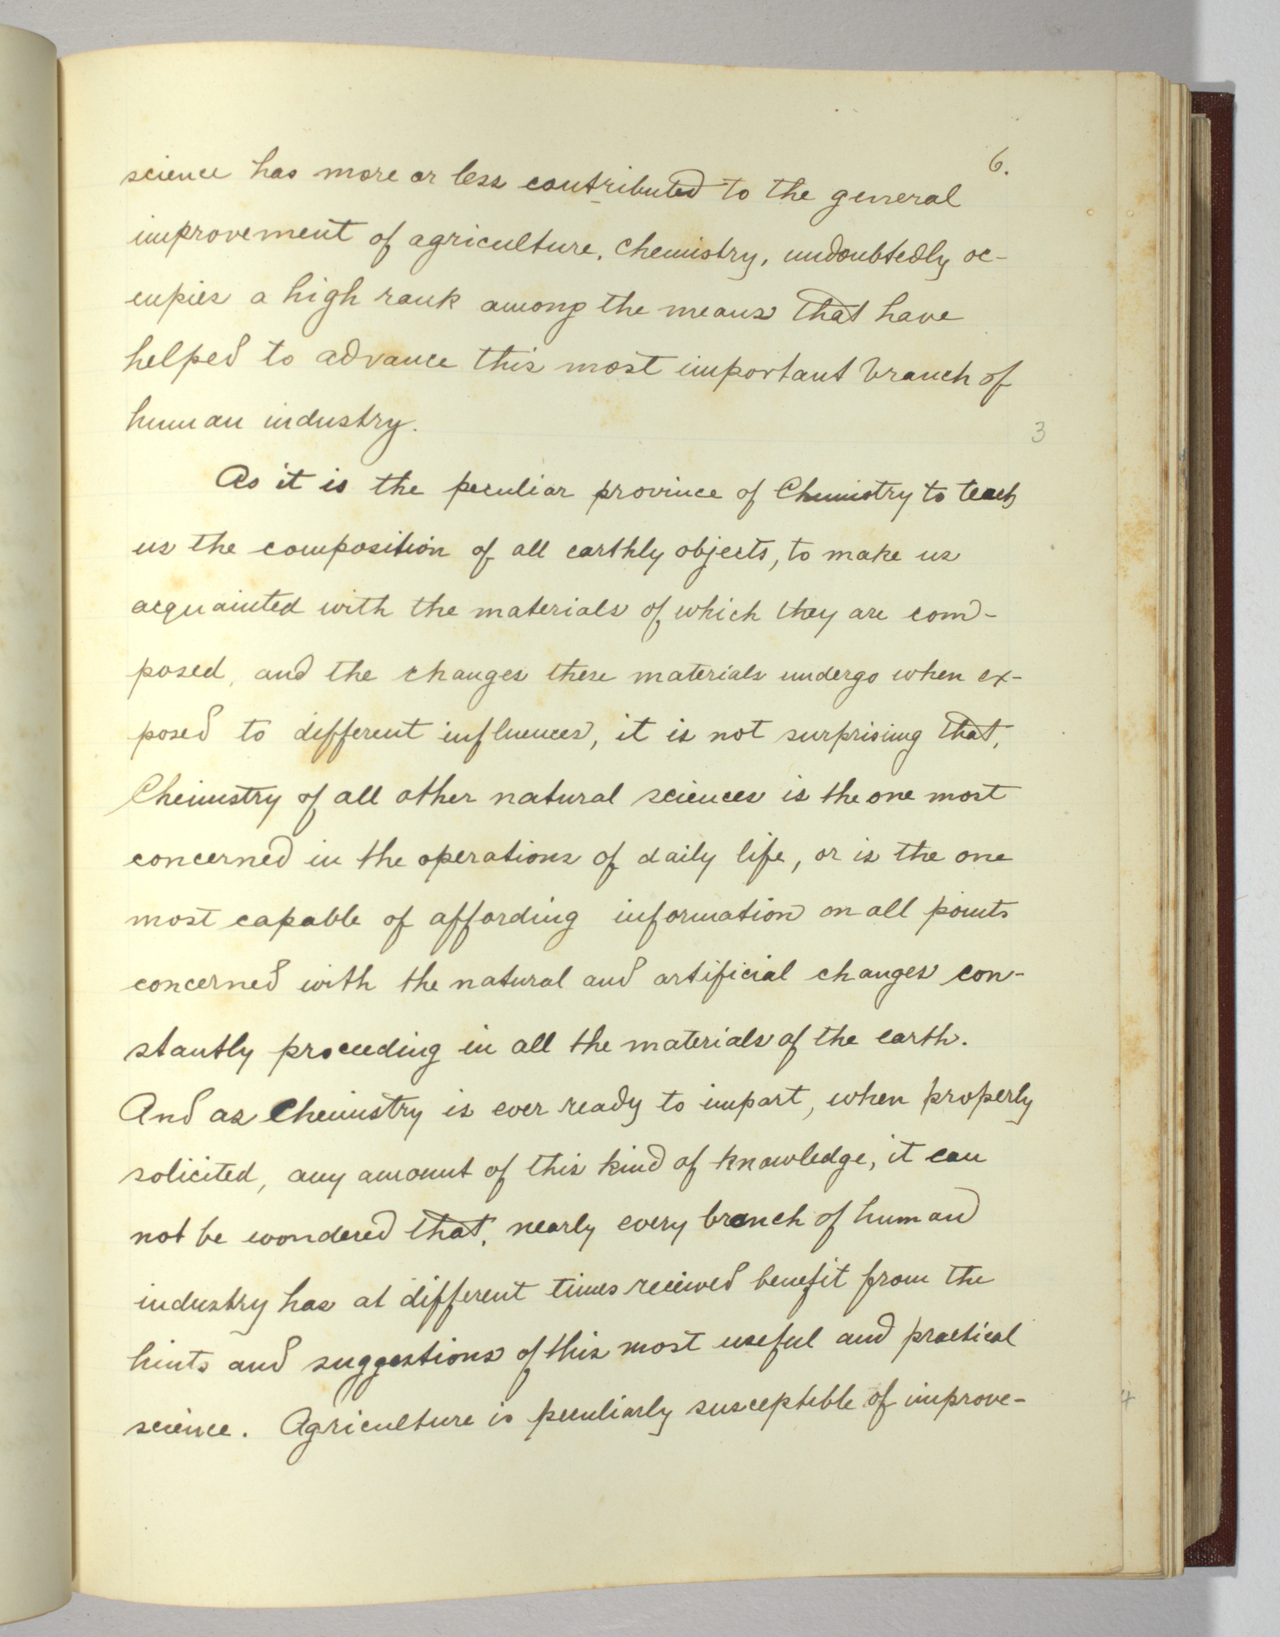 6.
science has more or less contributed to the general
improvement of agriculture. Chemistry, undoubtedly oc-
cupies a high rank among the means that have
helped to advance this most important branch of
human industry.
3
As it is the peculiar province of Chemistry to teach
us the composition of all earthly objects, to make us
acquainted with the materials of which they are com-
posed, and the changes these materials undergo when ex-
posed to different influences, it is not surprising that,
Chemistry of all other natural sciences is the one most
concerned in the operations of daily life, or is the one
most capable of affording information on all points
concerned with the natural and artificial changes con-
stantly proceeding in all the materials of the earth.
And as Chemistry is ever ready to impart, when properly
solicited, any amount of this kind of knowledge, it can
not be wondered that, nearly every branch of human
industry has at different times received benefit from the
hints and suggestions of this most useful and practical
science. Agriculture is peculiarly susceptible of improve-
4